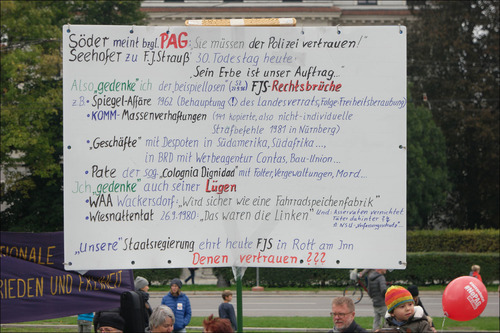 Söder meint bzgl. PAG: „Sie müssen der Polizei vertrauen!"
Seehofer zu F.J. Strauß' 30. Todestag heute:
„Sein Erbe ist unser Auftrag..."
Also „gedenke" ich der beispiellosen FJS-Rechtsbrüche
z.B. • Spiegel-Affäre 1962 (Behauptung (!) des Landesverrats, Folge: Freiheitsberaubung)
• KOMM-Massenverhaftungen (141 kopierte, also nicht-individuelle
Strafbefehle 1981 in Nürnberg)
• „Geschäfte" mit Despoten in Südamerika, Südafrika...,
in BRD mit Werbeagentur Contas, Bau-Union...
• Pate der sog. „Colognia Dignidad" mit Folter, Vergewaltigungen, Mord...
Ich „gedenke" auch seiner Lügen
• WAA Wackersdorf: „Wird sicher wie eine Fahrradspeichenfabrik"
• Wiesnattentat 26.9.1980: „Das waren die Linken"
Und: Asservaten vernichtet
Täter dahinter
NSU
„Unsere" Staatsregierung ehrt heute FJS in Rott am Inn
Denen vertrauen???
IONALE
RIEDEN UND FREIHEIT